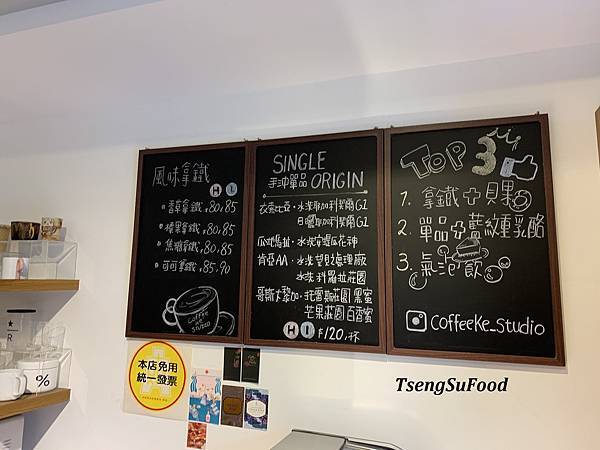 風味拿鐵
H I
香草拿鐵 80, 85
榛果拿鐵 80, 85
焦糖拿鐵 80, 85
可可拿鐵 85, 90
Coffee
SINGLE
手沖單品 ORIGIN
衣索比亞・水洗耶加利契爾G1
日曬耶加利契爾G1
瓜地馬拉・水洗花神
肯亞AA・水洗 處理廠
水洗 科羅拉莊園
哥斯大黎加・托雷斯莊園 黑蜜
芒果莊園 百香蜜
H I $120,杯
TOP 3
1. 拿鐵+貝果
2. 單品+藍紋重乳酪
3. 氣泡飲
CoffeeKe_studio
本店免用
統一發票
%
R
TsengSuFood